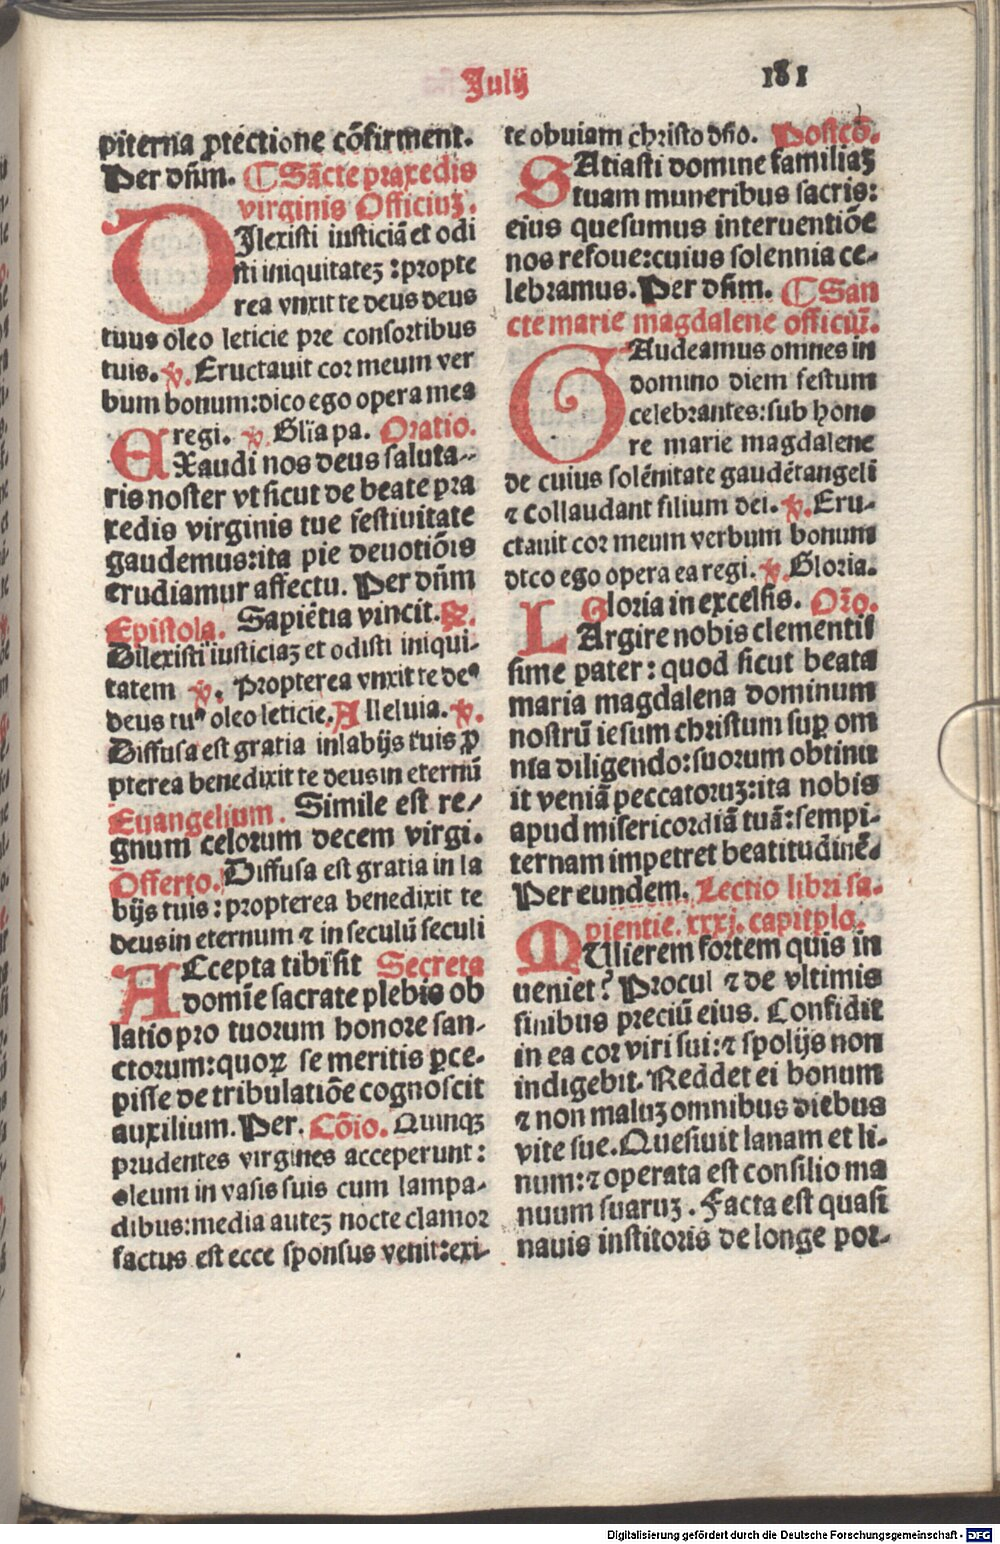 Julij
181
piterna ꝓtectione cõfirment.
Per dñm. ⸿ Sãcte praxedis
virginis Officiuꝫ.
DIlexisti iusticiã et odi
sti iniquitateꝫ : propte
rea vnxit te deus deus
tuus oleo leticie pre consortibus
tuis. ℣. Eructauit cor meum ver
bum bonum: dico ego opera mea
regi. ℣. Glia pa. Oratio.
EXaudi nos deus saluta-
ris noster vt sicut de beate pra
xedis virginis tue festiuitate
gaudemus: ita pie deuotiõis
erudiamur affectu. Per dñm
Epistola. Sapiẽtia vincit. ℟.
Dilexisti iusticiaꝫ et odisti iniqui-
tatem ℣. Propterea vnxit te deꝰ
deus tuꝰ oleo leticie. Alleluia. ℣.
Diffusa est gratia in labijs tuis ꝓ
pterea benedixit te deus in eternũ
Euangelium. Simile est re/
gnum celorum decem virgi.
Offerto. Diffusa est gratia in la
bijs tuis : propterea benedixit te
deus in eternum ⁊ in seculũ seculi
ACcepta tibi sit Secreta
domĩe sacrate plebis ob
latio pro tuorum honore san-
ctorum: quoꝝ se meritis ꝑce-
pisse de tribulatiõe cognoscit
auxilium. Per. Cõio. Quinqꝫ
prudentes virgines acceperunt :
oleum in vasis suis cum lampa-
dibus: media auteꝫ nocte clamor
factus est ecce sponsus venit: exi-
te obuiam christo dño. Postcõ.
SAtiasti domine familiaꝫ
tuam muneribus sacris:
eius quesumus interuentiõe
nos refoue: cuius solennia ce-
lebramus. Per dñm. ⸿ San
cte marie magdalene officiũ.
GAudeamus omnes in
domino diem festum
celebrantes: sub hono
re marie magdalene
de cuius solẽnitate gaudẽt angeli
⁊ collaudant filium dei. ℣. Eru-
ctauit cor meum verbum bonum
dico ego opera ea regi. ℣. Gloria.
Gloria in excelsis. Orõ.
LArgire nobis clementis
sime pater : quod sicut beata
maria magdalena dominum
nostrũ iesum christum suꝑ om
nia diligendo: suorum obtinu
it veniã peccatoruꝫ: ita nobis
apud misericordiã tuã: sempi-
ternam impetret beatitudinẽ.
Per eundem. Lectio libri sa-
pientie. xxxj. capitplo.
MUlierem fortem quis in
ueniet? Procul ⁊ de vltimis
finibus preciũ eius. Confidit
in ea cor viri sui: ⁊ spolijs non
indigebit. Reddet ei bonum
⁊ non maluꝫ omnibus diebus
vite sue. Quesiuit lanam et li-
num: ⁊ operata est consilio ma
nuum suaruꝫ. Facta est quasi
nauis institoris de longe por-
Digitalisierung gefördert durch die Deutsche Forschungsgemeinschaft - DFG